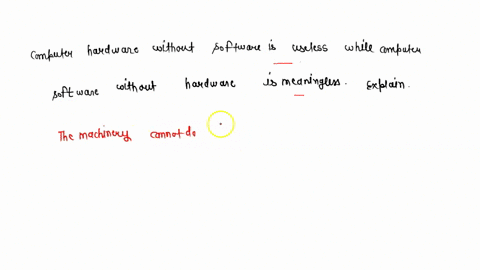 computer hardware without software is useless while computer
software without hardware is meaningless. Explain.
The machinery cannot do